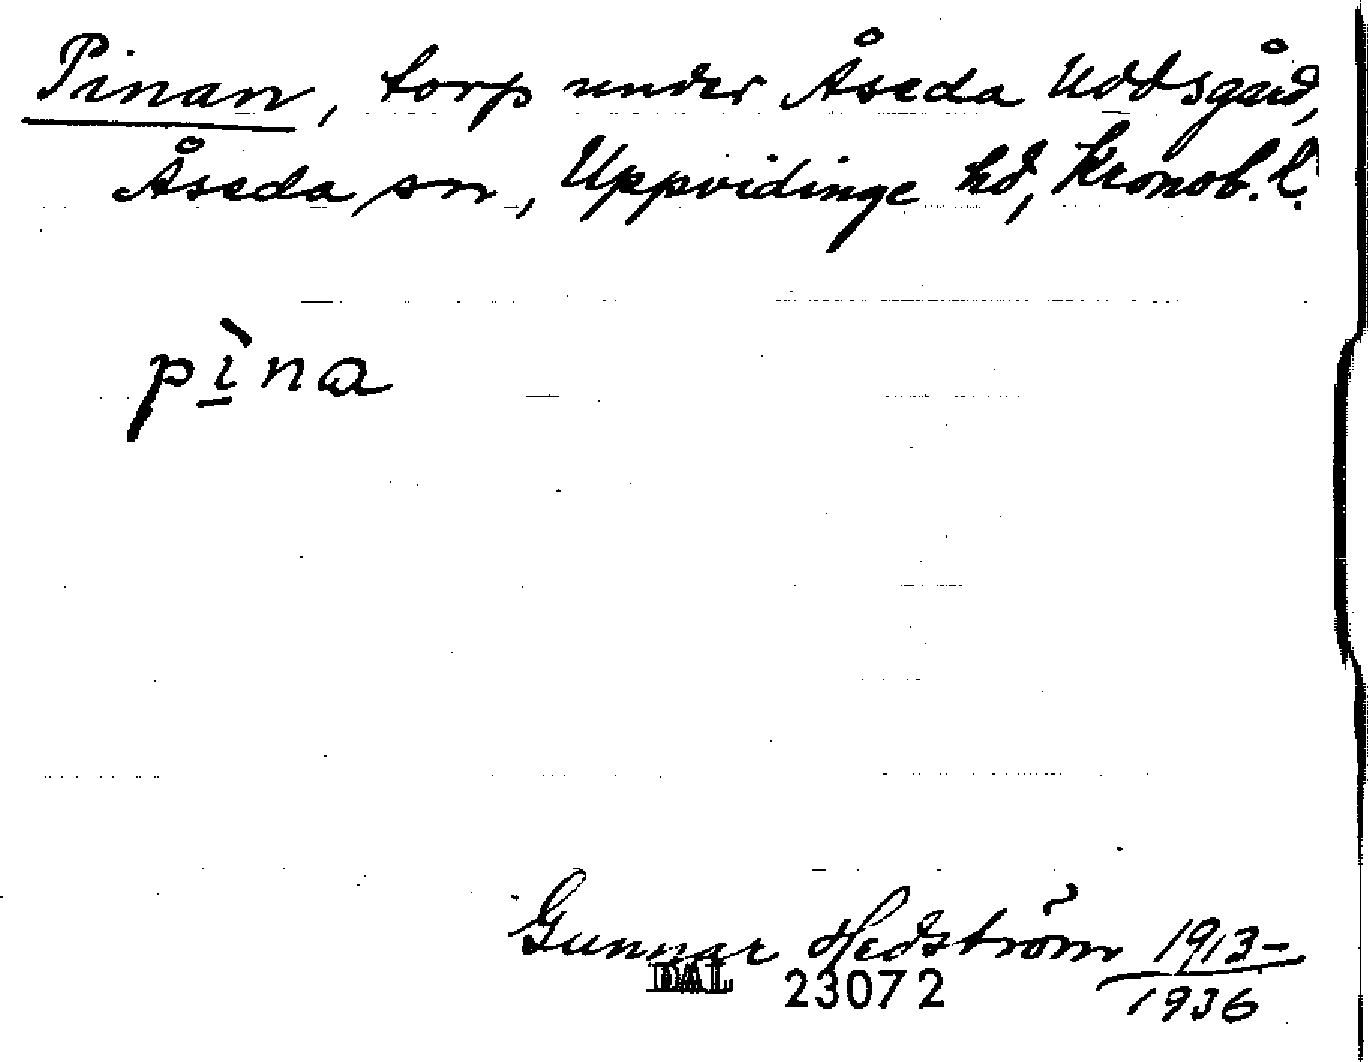 Pinan, torp under Åseda Uddsgård,
Åseda sn, Uppvidinge hd, Kronob. l.
pı̀na
Gunnar Hedström 1913-
1936
DAL 23072